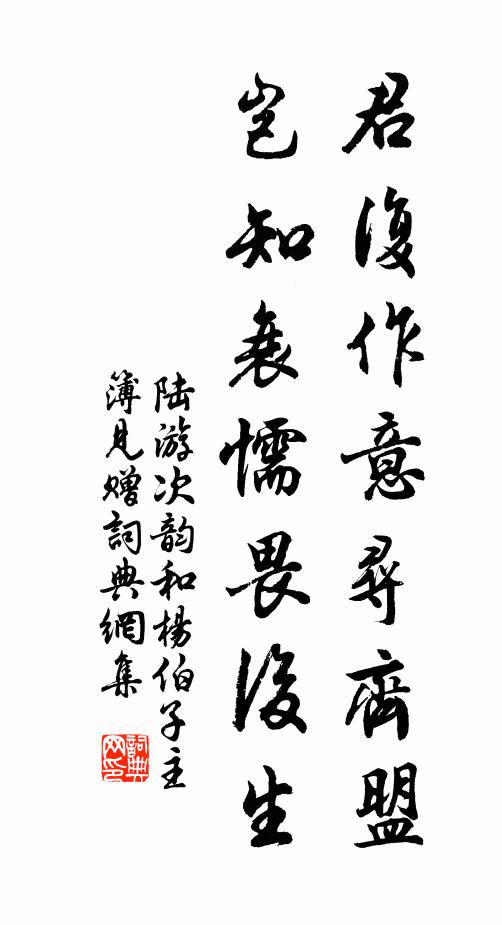 君復作意尋齊盟
豈知衰懦畏後生
陆游次韵和楊伯子主
簿見贈詞典網集
詞典
网印